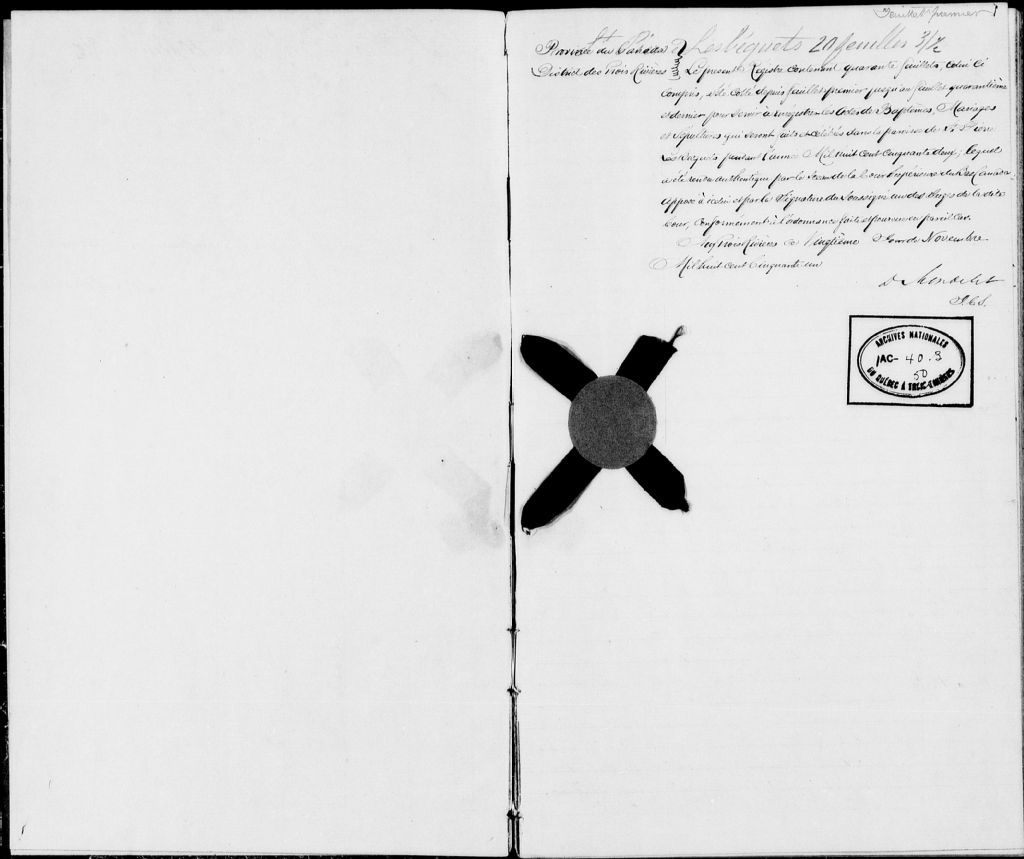 Feuillet premier 1
Lesbéquets 20 feuilles 3/72
Province du Canada
District des Trois Rivières
Le présent Registre contenant quarante feuillets, celui ci
compris, a été cotté depuis feuillet premier jusqu'au feuillet quarantième
et dernier pour servir à enrégistrer les Actes de Baptêmes, Mariages
et Sépultures qui seront faits et célébrés dans la paroisse de St Pierre
Les Becquets pendant l'année Mil huit cent cinquante deux; lequel
a été rendu authentique par le Sceau de la Cour Supérieure du Bas Canada
apposé à icelui et par la Signature du Soussigné un des Juges de la dite
Cour, conformément à l'ordonnance faite et pourvue en pareil cas.
Aux Trois Rivières ce Vingtième Jour de Novembre
Mil huit cent cinquante un
D Mondelet
J.C.S.
ARCHIVES NATIONALES
1AC- 40.9
50
DU QUÉBEC À TROIS-RIVIÈRES